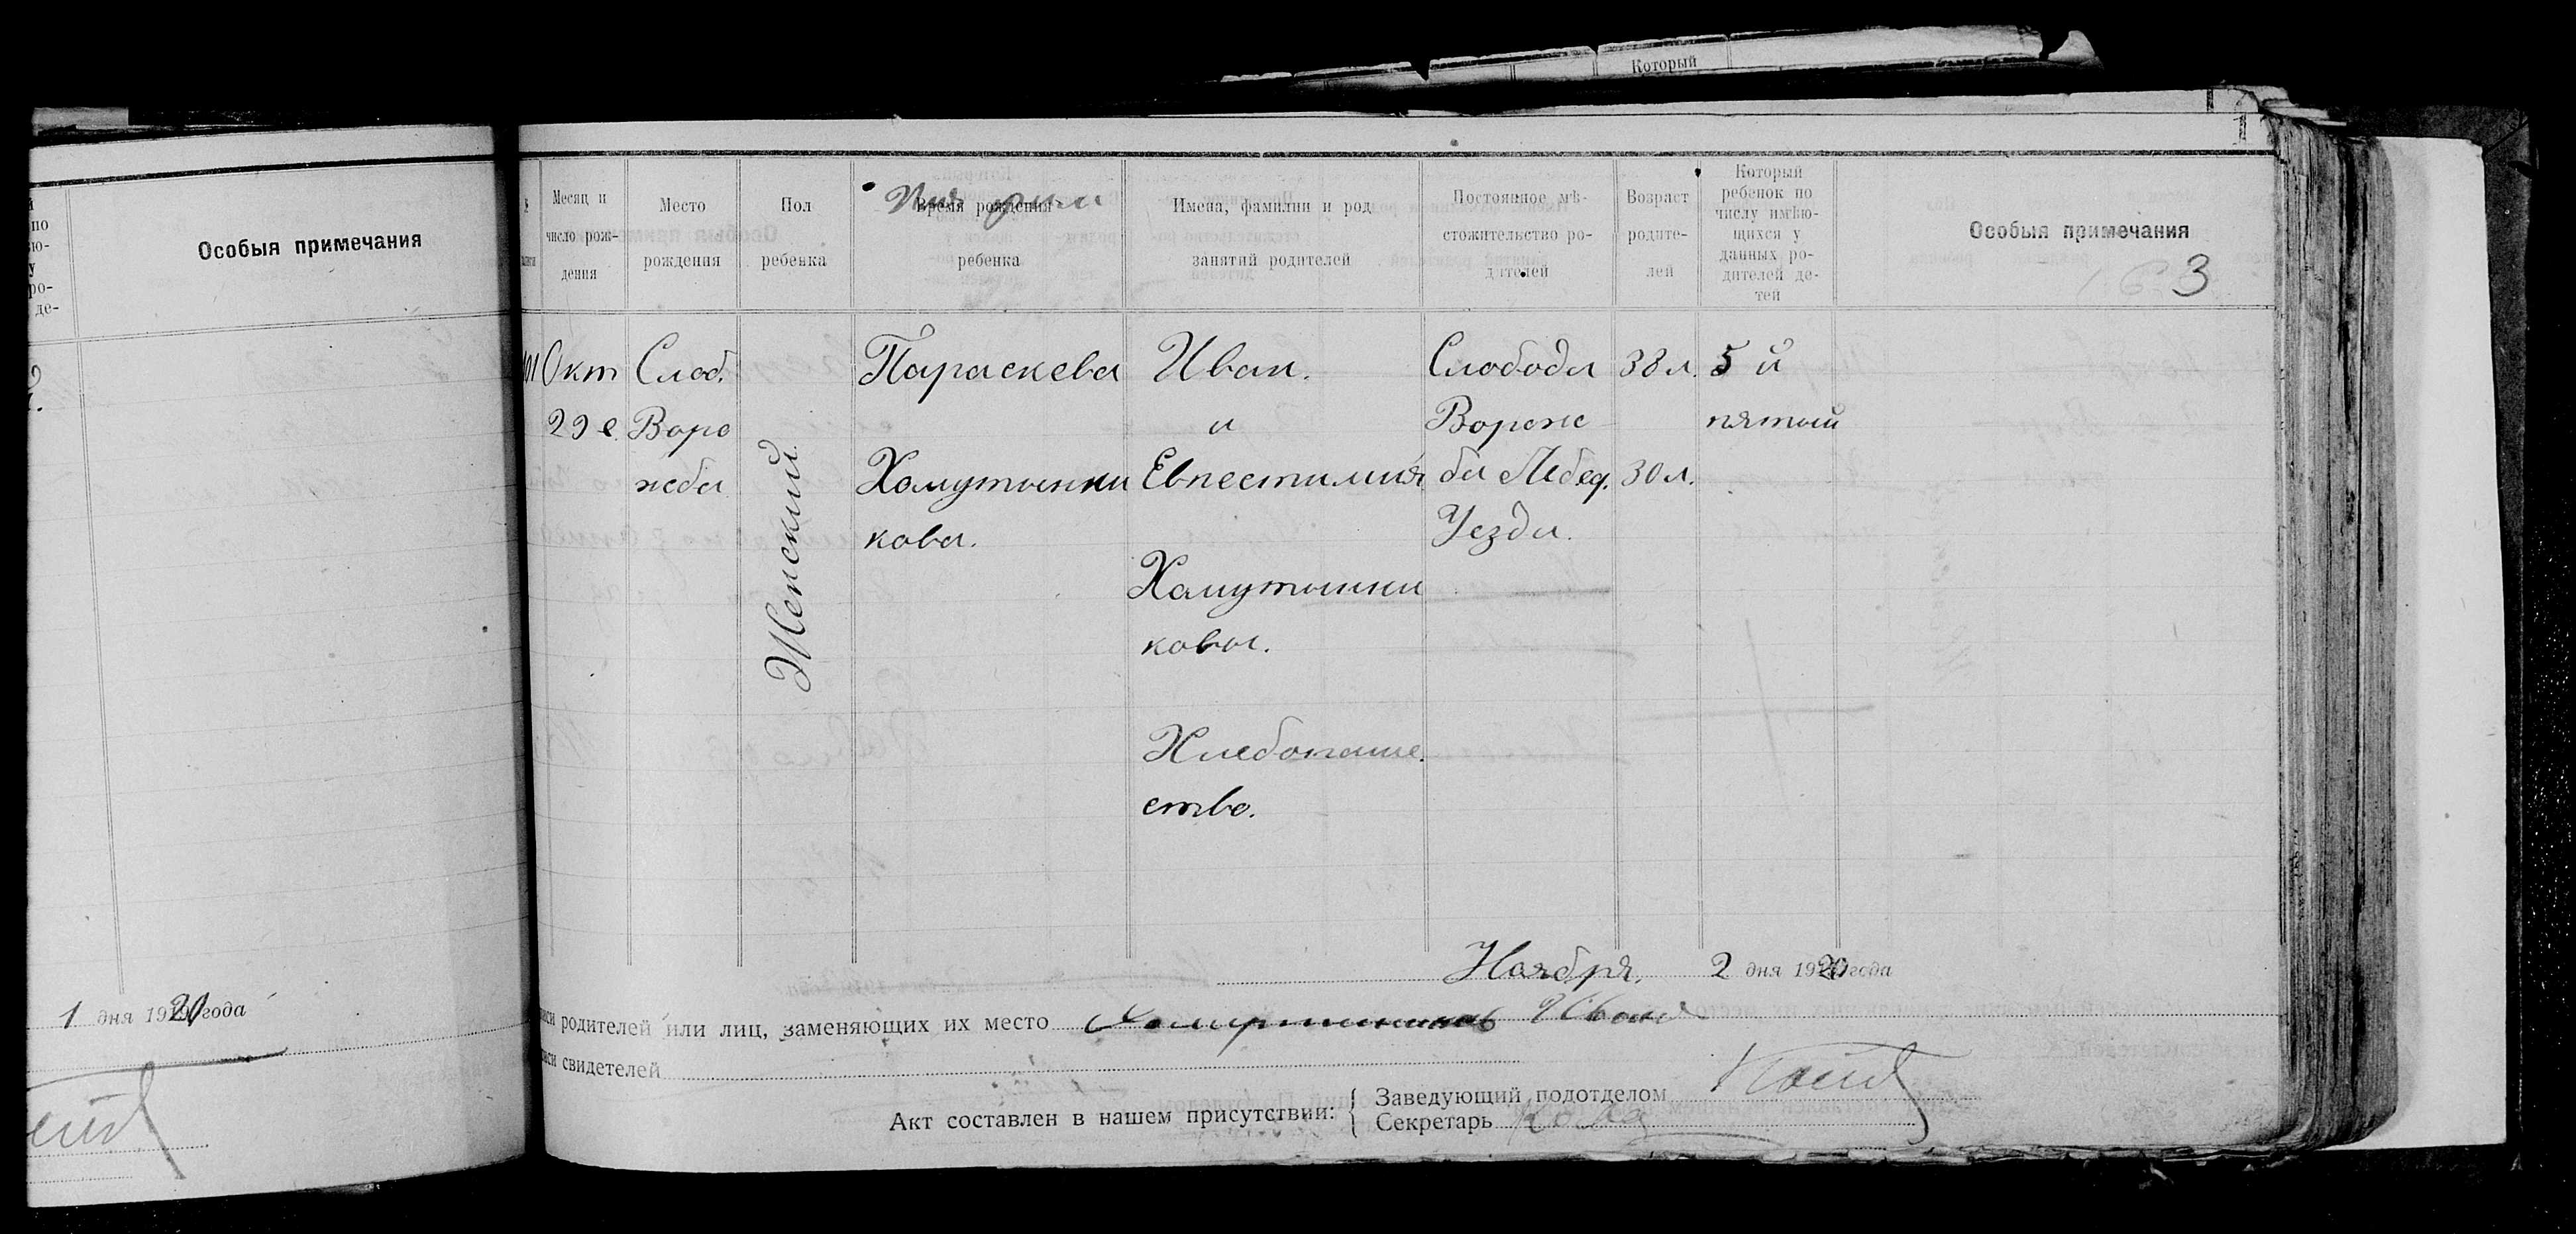 Который
по
ю-
у
ро-
де-
Особыя примечания
1 дня 1920 года
Месяц и
число рож-
дения
Место
рождения
Пол
ребенка
Время рождения
ребенка
Имена, фамилии и род
занятий родителей
Постоянное мѣ-
стожительство ро-
дителей
Возраст
родите-
лей
Который
ребенок по
числу имѣю-
щихся у
данных ро-
дителей де-
тей
Особыя примечания
3
Окт
29 е.
Слоб.
Воро
жба
Женский
Параскева
Хомутынни
кова.
Иван.
и
Евпестимия
Хомутынни
ковы.
Хлебопаше.
ство.
Слобода
Вороже
ба Лебед.
Уезда.
38 л.
30 л.
5 й
пятый
Ноября. 2 дня 1920 года
родителей или лиц, заменяющих их место Хомутинников Иван
свидетелей
Акт составлен в нашем присутствии:
Заведующий подотделом
Секретарь